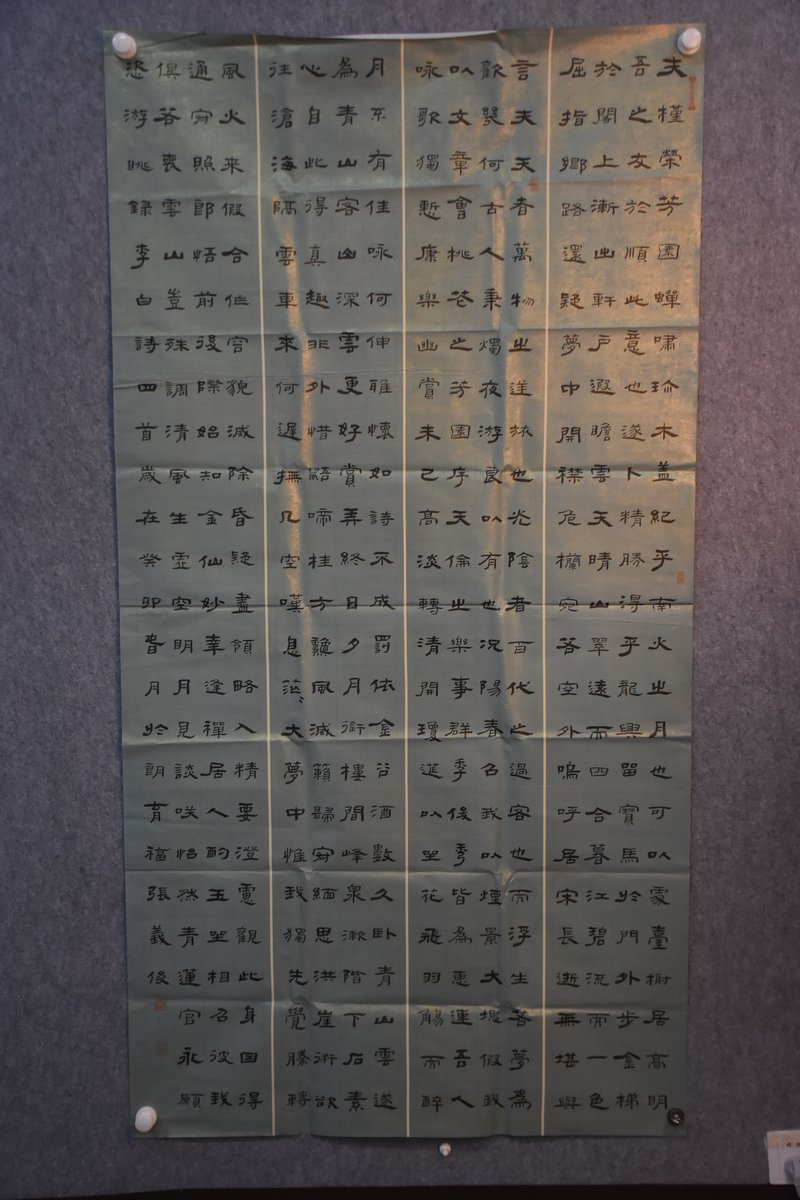 夫槿榮芳園蟬嘯珍木盖紀乎南火之月也可以處臺榭居高明
吾之友於順此意也遂卜精勝得乎龍興留寶馬於門外步金梯
於閣上漸出軒戶遐瞻雲天晴山翠遠而四合暮江碧流而一色
屈指鄉路還疑夢中開襟危欄宛若空外嗚呼居宋長逝無堪與
言夫天者萬物之逆旅也光陰者百代之過客也而浮生若夢為
歡幾何古人秉燭夜游良以有也况陽春召我以煙景大塊假我
以文章會桃花之芳園序天倫之樂事群季俊秀皆為惠連吾人
咏歌獨慙康樂幽賞未已高談轉清開瓊筵以坐花飛羽觴而醉
月不有佳咏何伸雅懷如詩不成罰依金谷酒數久卧青山雲遂
為青山客山深雲更好賞弄終日夕月銜樓間峰泉漱階下石素
心自此得真趣非外惜鼯啼桂方秋風滅籟歸寂緬思洪崖術欲
往滄海隔雲車來何遲撫几空嘆息茫茫大夢中惟我獨先覺騰轉
風火来假合作容貌滅除昏疑盡領略入精要澄慮觀此身因得
通寂照郎悟前後際始知金仙妙幸逢禪居人酌玉坐相召彼我
俱若喪雲山豈殊調清風生虛空明月見談咲怡然青蓮宮永願
恣游眺錄李白詩四首歲在癸卯春月於朗育福張義俊